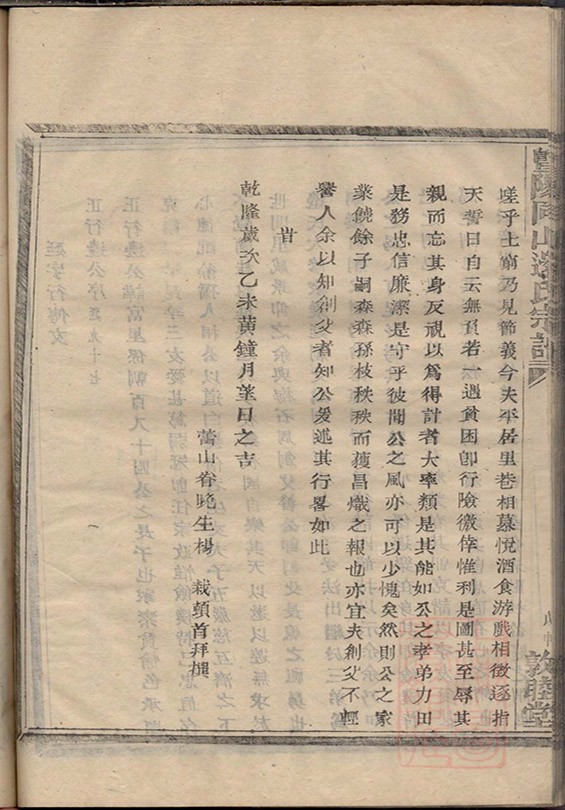 嗟乎士窮乃見節義今夫平居里巷相慕悅酒食游戲相徵逐指
天誓日自云無負若一遇貧困卽行險徼倖惟利是圖甚至辱其
親而忘其身反視以爲得計者大率類是其能如公之孝弟力田
是務忠信廉潔是守乎彼聞公之風亦可以少愧矣然則公之家
業饒餘子嗣森森孫枝秩秩而獲昌熾之報也亦宜夫創父不輕
譽人余以知創父者知公爰述其行畧如此
旹
乾隆歲次乙未黃鐘月望日之吉
蕭山眷晚生楊 栽頓首拜撰
山 氏宗譜
敦睦堂